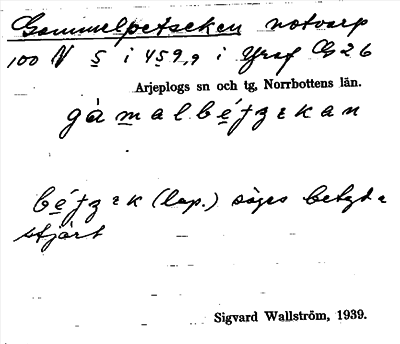 Gammelpetseken notvarp
100 N § i 459,9 i Yraf G 26
Arjeplogs sn och tg, Norrbottens län.
gàmalbéţzɛkan
béţzɛk (lap.) säges betyda
stjärt
Sigvard Wallström, 1939.